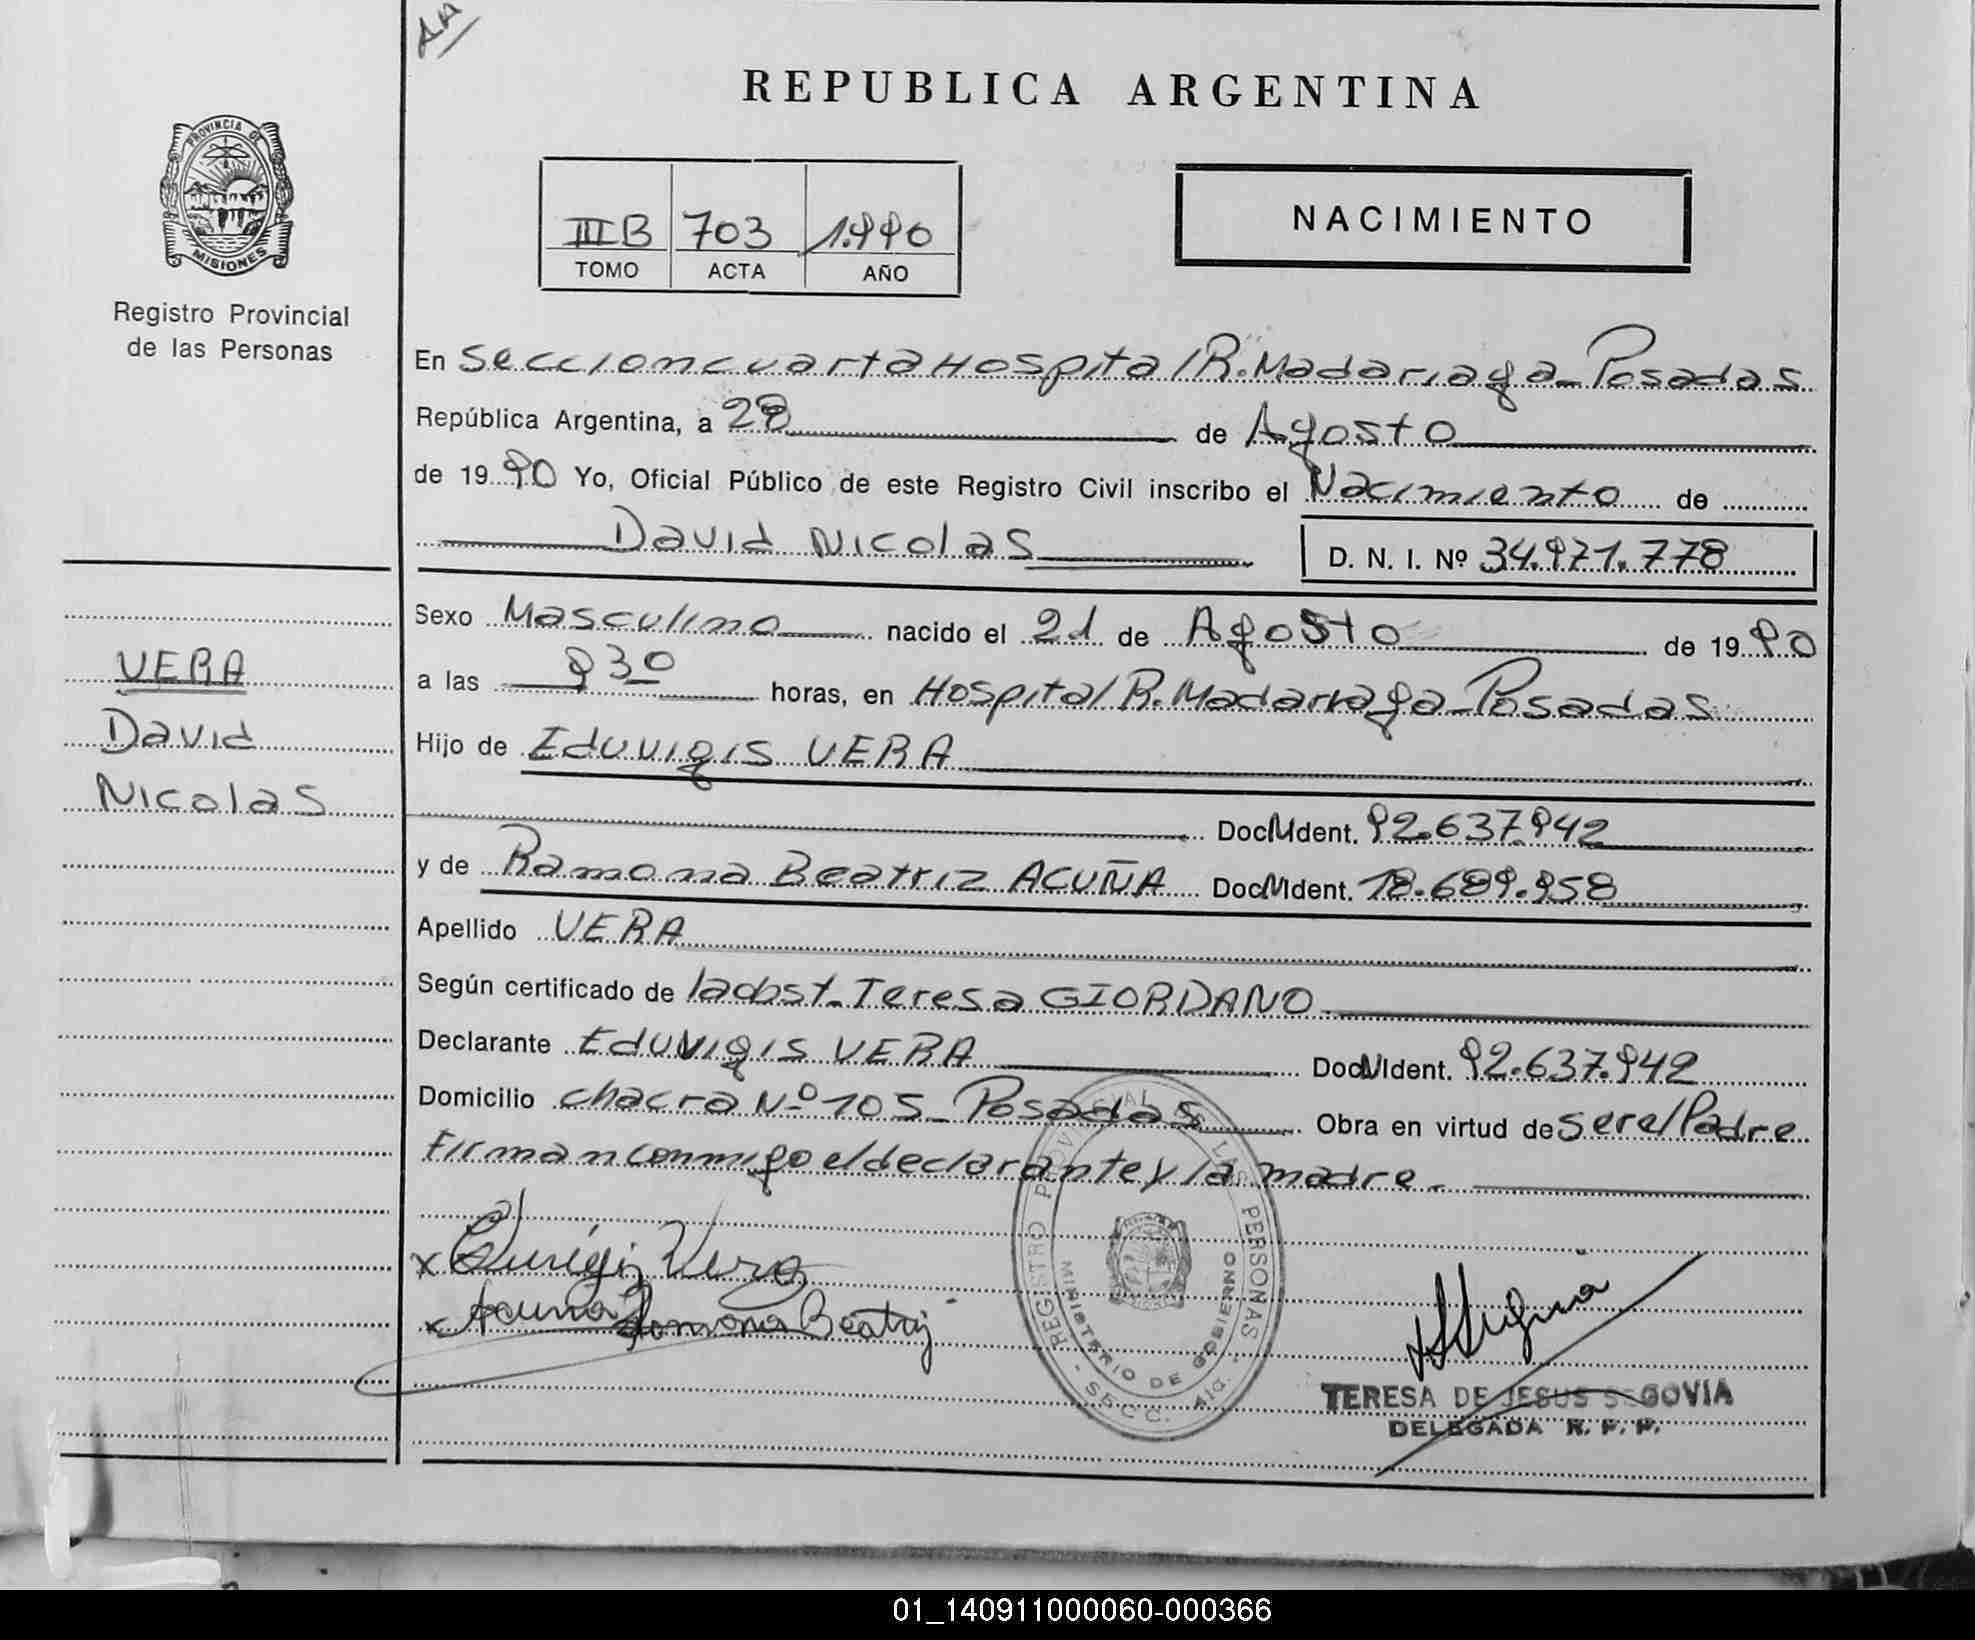 REPUBLICA ARGENTINA
PROVINCIA DE MISIONES
Registro Provincial
de las Personas
III B 703 1.990
TOMO ACTA AÑO
NACIMIENTO
En Seccion cuarta Hospital R. Madariaga - Posadas
República Argentina, a 28 de Agosto
de 1990 Yo, Oficial Público de este Registro Civil inscribo el Nacimiento de
David Nicolas D. N. I. Nº 34.971.778
Sexo Masculino nacido el 21 de Agosto de 1990
a las 930 horas, en Hospital R. Madariaga - Posadas
Hijo de Eduvigis VERA
Doc Ident. 92.637.942
y de Ramona Beatriz ACUÑA Doc Ident. 18.689.958
Apellido VERA
Según certificado de la obst. Teresa GIORDANO
Declarante Eduvigis VERA Doc Ident. 92.637.942
Domicilio chacra Nº 105 - Posadas Obra en virtud de ser el Padre
Firman conmigo el declarante y la madre.
VERA
David
Nicolas
x Vera
x Acuña Ramona Beatriz
REGISTRO PROVINCIAL DE LAS PERSONAS
MINISTERIO DE GOBIERNO
SECC. 4ta.
TERESA DE JESUS SEGOVIA
DELEGADA R. P. P.
01_140911000060-000366